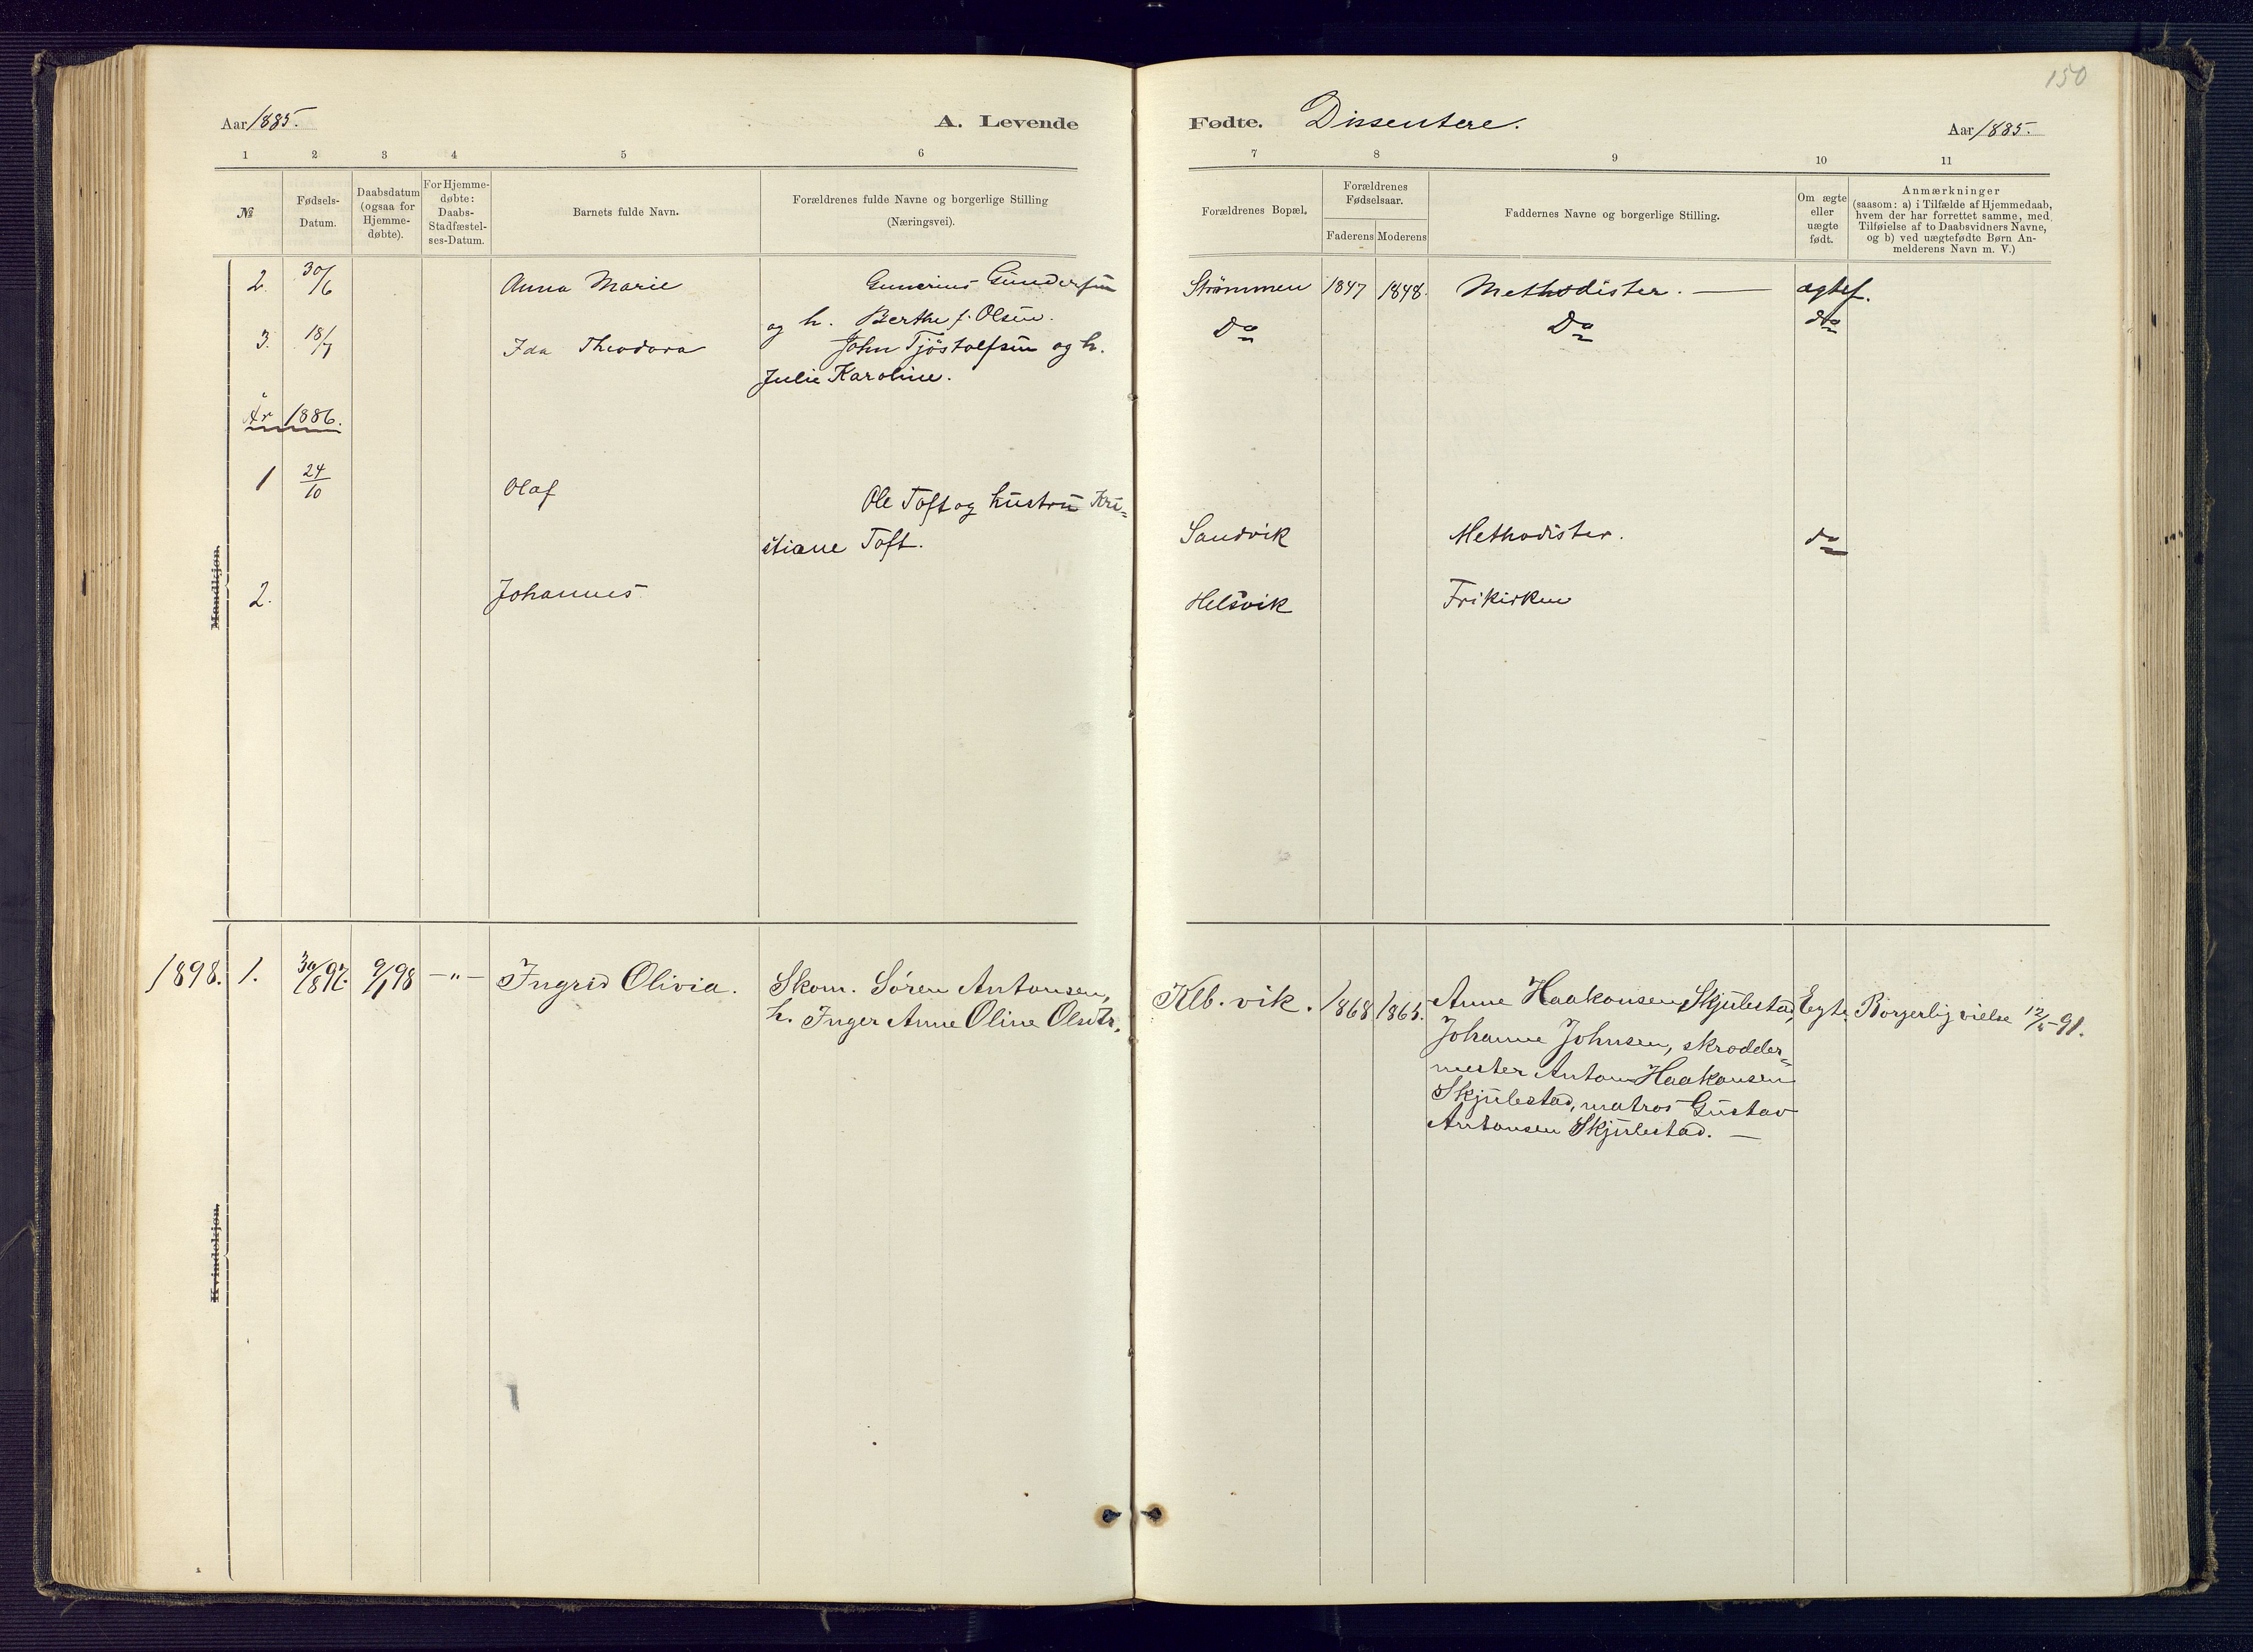 150
Aar 1885.
A. Levende
Fødte. Dissentere.
Aar 1885.
1 2 3 4 5 6
7 8 9 10 11
№
Fødsels-
Datum.
Daabsdatum
(ogsaa for
Hjemme-
døbte).
For Hjemme-
døbte:
Daabs-
Stadfæstel-
ses-Datum.
Barnets fulde Navn.
Forældrenes fulde Navne og borgerlige Stilling
(Næringsvei).
Forældrenes Bopæl.
Forældrenes
Fødselsaar.
Faderens Moderens
Faddernes Navne og borgerlige Stilling.
Om ægte
eller
uægte
født.
Anmærkninger
(saasom: a) i Tilfælde af Hjemmedaab,
hvem der har forrettet samme, med
Tilføielse af to Daabsvidners Navne,
og b) ved uægtefødte Børn An-
melderens Navn m. V.)
2. 30/6 Anna Marie Gunerius Gundersen Strömmen 1847 1848. Methodister. — ægtef.
og h. Berthe f. Olsen.
3. 18/7 Ida Theodora John Tjöstolfsen og h. Do Do do
Julie Karoline.
År 1886.
1 24/10 Olaf Ole Toft og hustru Kri=
stiane Toft. Sandvik Methodister. do
2. Johannes Helsvik Frikirken
Mandkjøn.
1898. 1. 30/8 97. 9/1 98 –"– Ingrid Olivia. Skom. Sören Antonsen, Klb. vik. 1868 1865. Anne Haakonsen Skjulestad, Egte. Borgerlig vielse 12/5-91.
h. Inger Anne Oline Olsdtr.
Johanne Johnsen, skrædder=
mester Anton Haakonsen
Skjulestad, matros Gustav
Antonsen Skjulestad. —
Kvindekjøn.